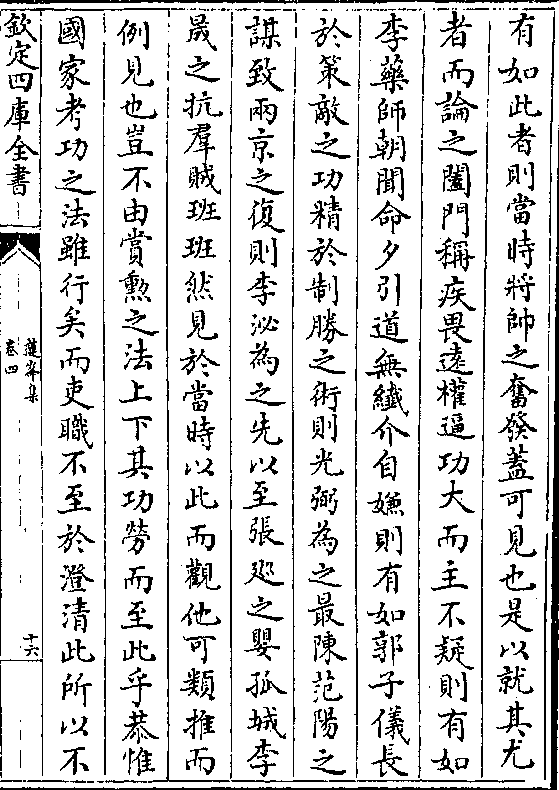 有如此者則當時將帥之奮發蓋可見也是以就其尤
者而論之闔門稱疾畏遠權逼功大而主不疑則有如
李藥師朝聞命夕引道無纖介自嫌則有如郭子儀長
於策敵之功精於制勝之術則光弼為之最陳范陽之
謀致兩京之復則李泌為之先以至張廵之嬰孤城李
晟之抗羣賊班班然見於當時以此而觀他可類推而
例見也豈不由賞勲之法上下其功勞而至此乎恭惟
國家考功之法雖行矣而吏職不至於澄清此所以不
欽定四庫全書
蓮峯集
卷四
十六